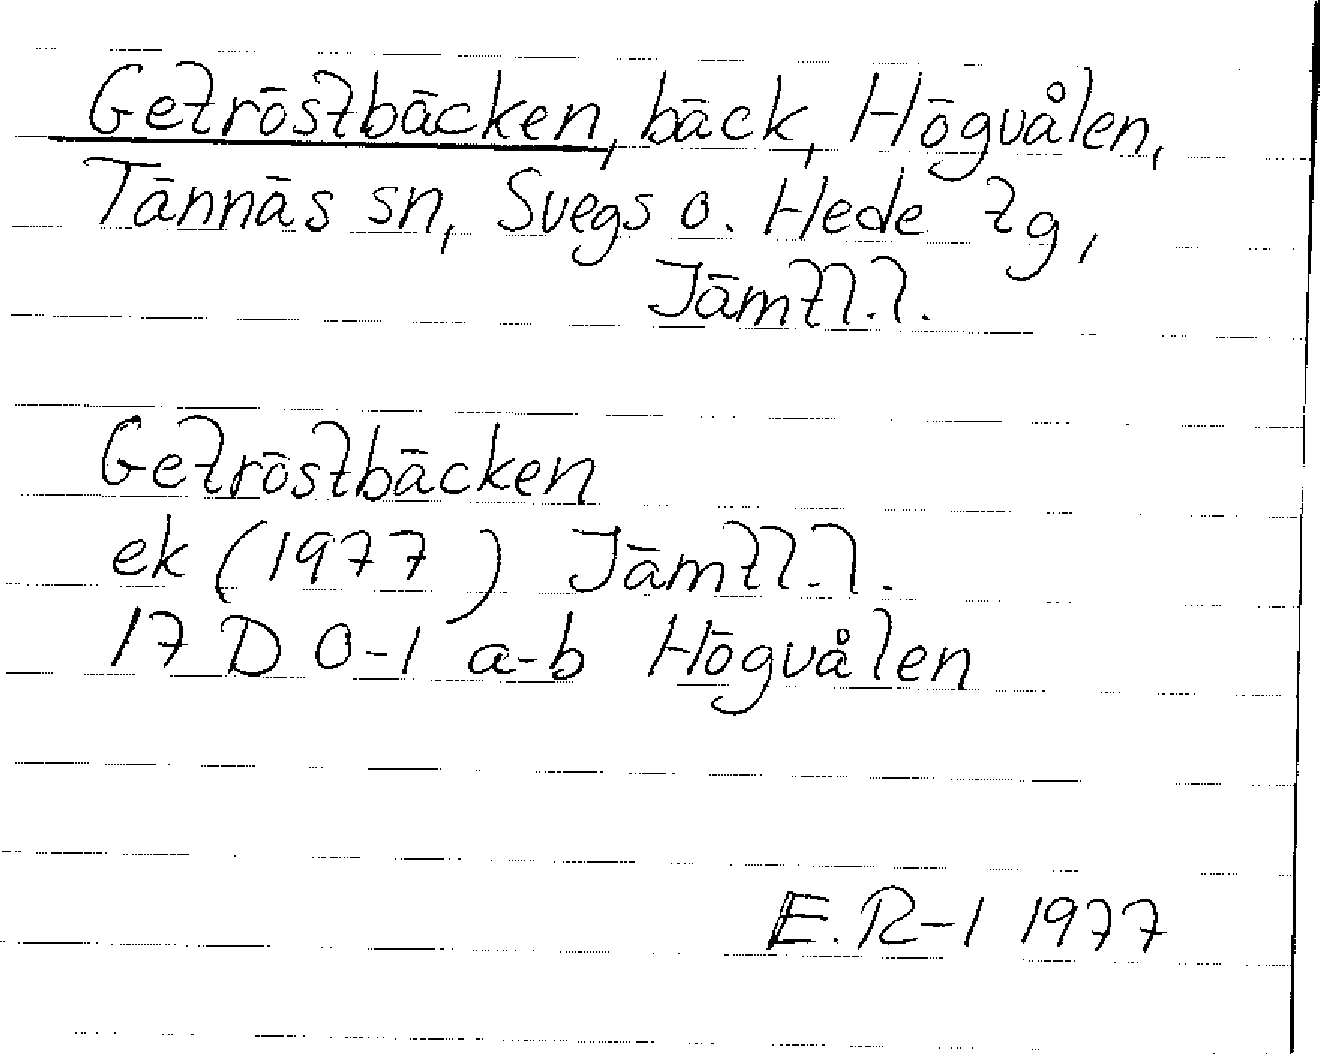 Getröstbäcken, bäck, Högvålen,
Tännäs sn, Svegs o. Hede tg,
Jämtl.l.
Getröstbäcken
ek (1977) Jämtl.l.
17 D 0-1 a-b Högvålen
E.R-l 1977